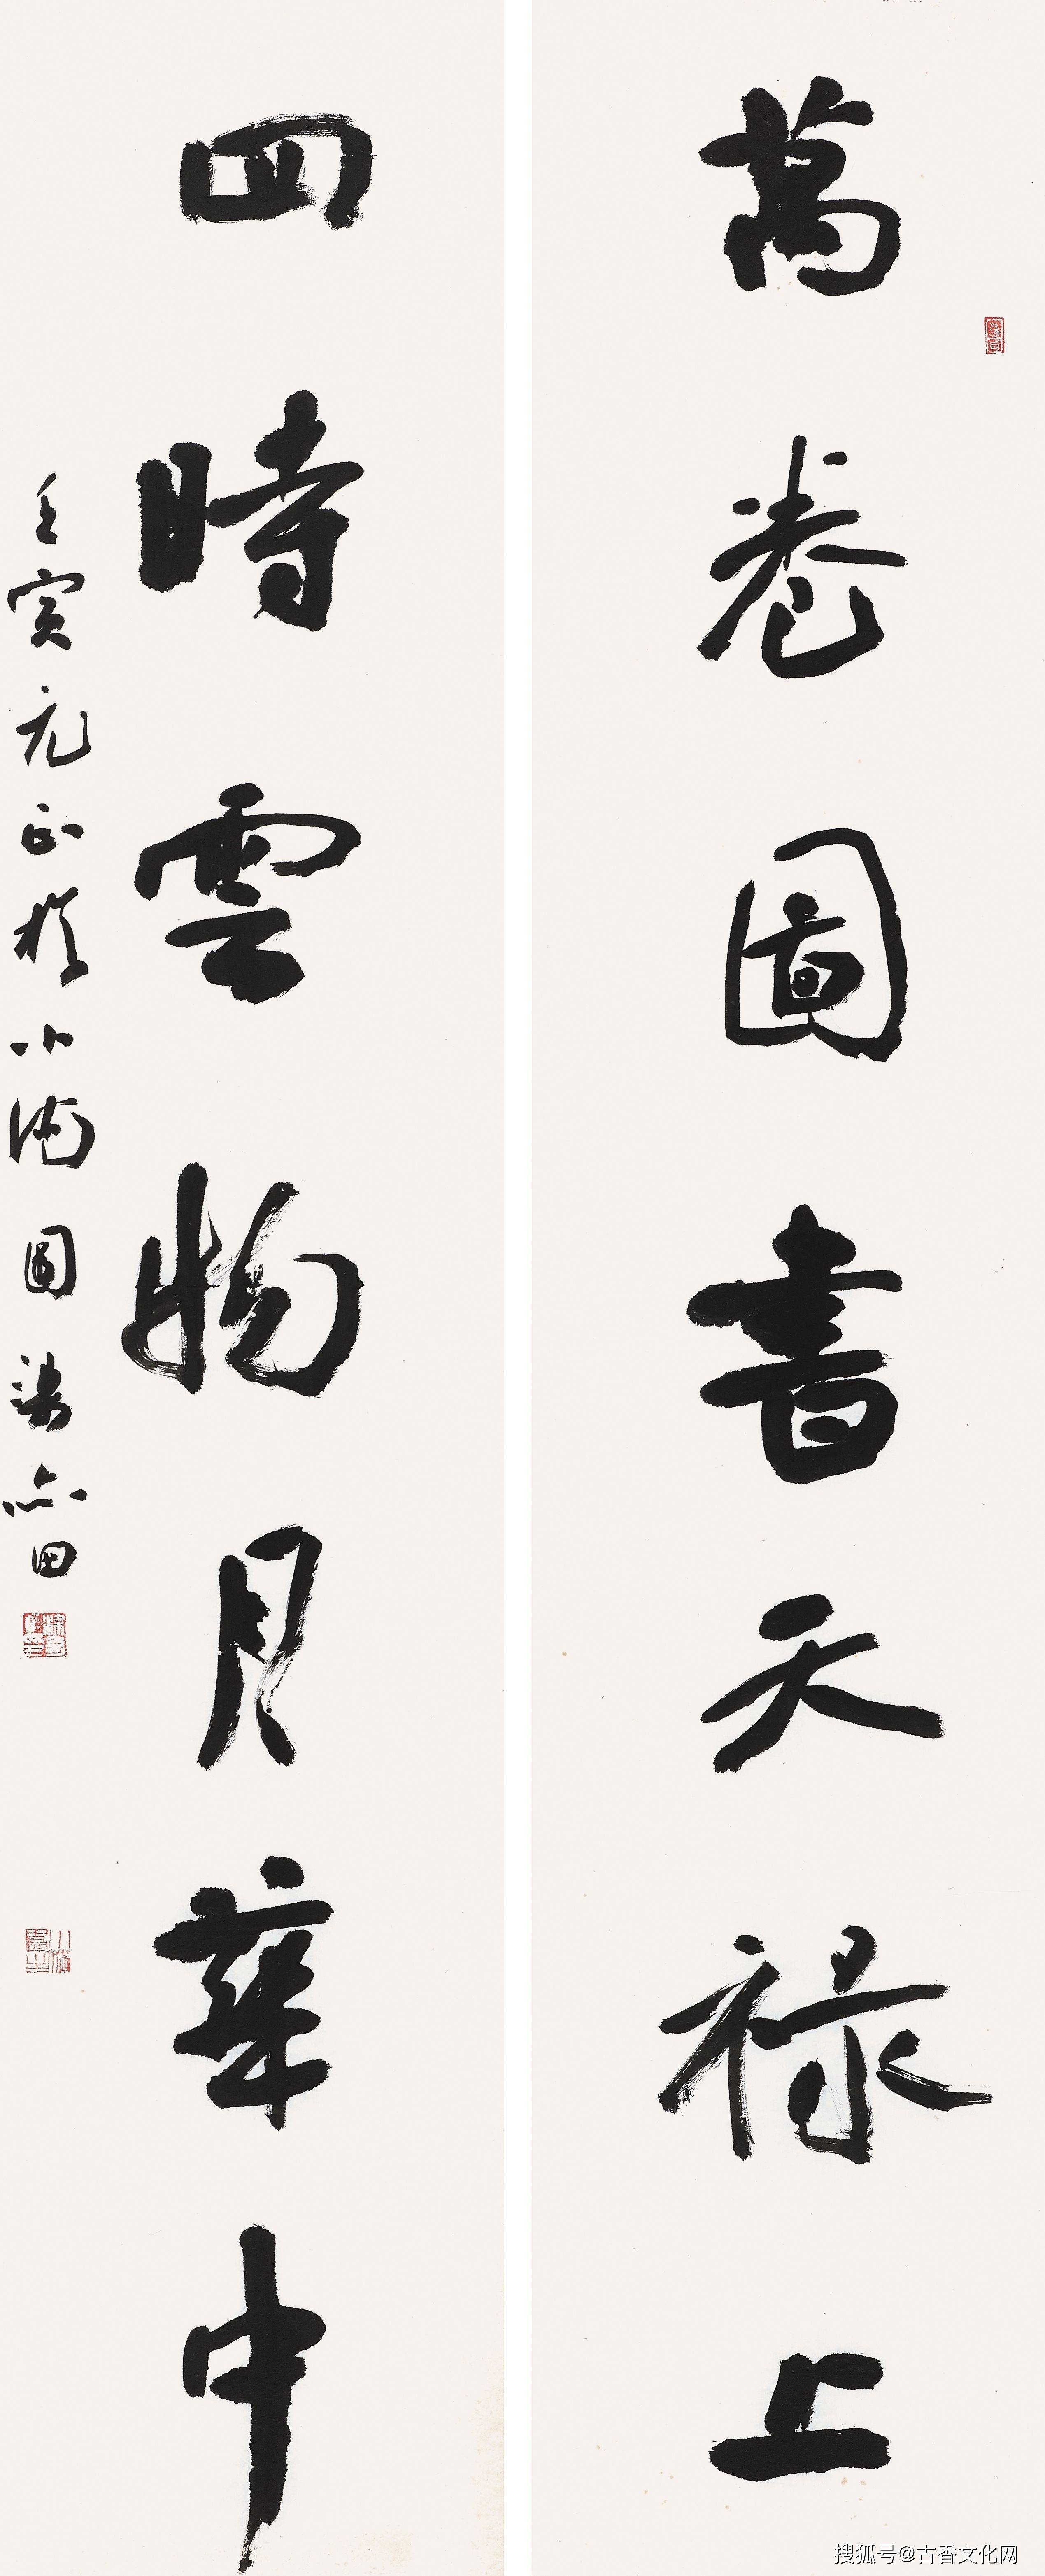 萬卷圖書天祿上
四時雲物月華中
壬寅元正於小滿園梁亦田
搜狐号@古香文化网